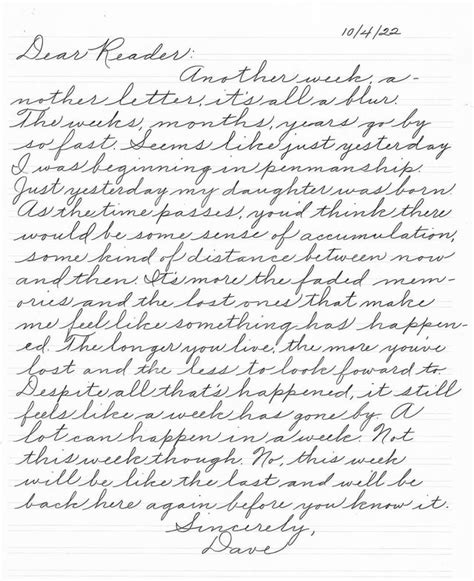 10/4/22
Dear Reader:
Another week, a-
nother letter, it's all a blur.
The weeks, months, years go by
so fast. Seems like just yesterday
I was beginning in penmanship.
Just yesterday my daughter was born.
As the time passes, you'd think there
would be some sense of accumulation,
some kind of distance between now
and then. It's more the faded mem-
ories and the lost ones that make
me feel like something has happen-
ed. The longer you live, the more you've
lost and the less to look foward to.
Despite all that's happened, it still
feels like a week has gone by. A
lot can happen in a week. Not
this week though. No, this week
will be like the last and will be
back here again before you know it.
Sincerely,
Dave